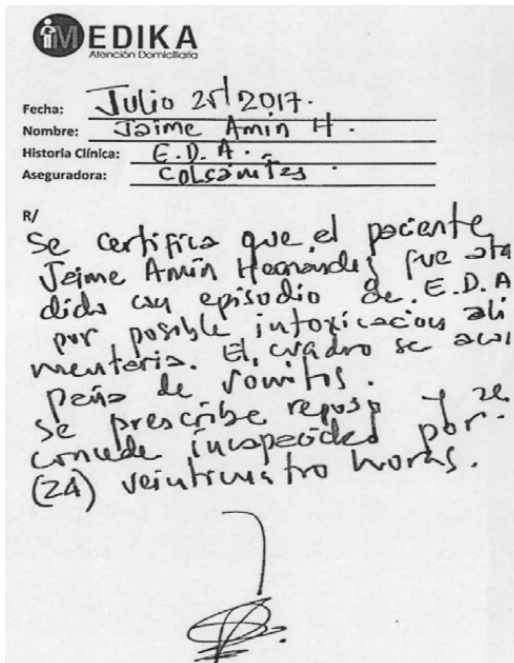 MEDIKA
Atención Domiciliaria
Fecha: Julio 25/2017.
Nombre: Jaime Amin H.
Historia Clínica: E.D.A.
Aseguradora: Colsánitas.
R/
Se certifica que el paciente
Jaime Amín Hernández fue ate
dido con episodio de E.D.A
por posible intoxicación ali
mentaria. El cuadro se acom
paña de vomitos.
Se prescribe reposo y se
concede incapacidad por.
(24) veinticuatro horas.